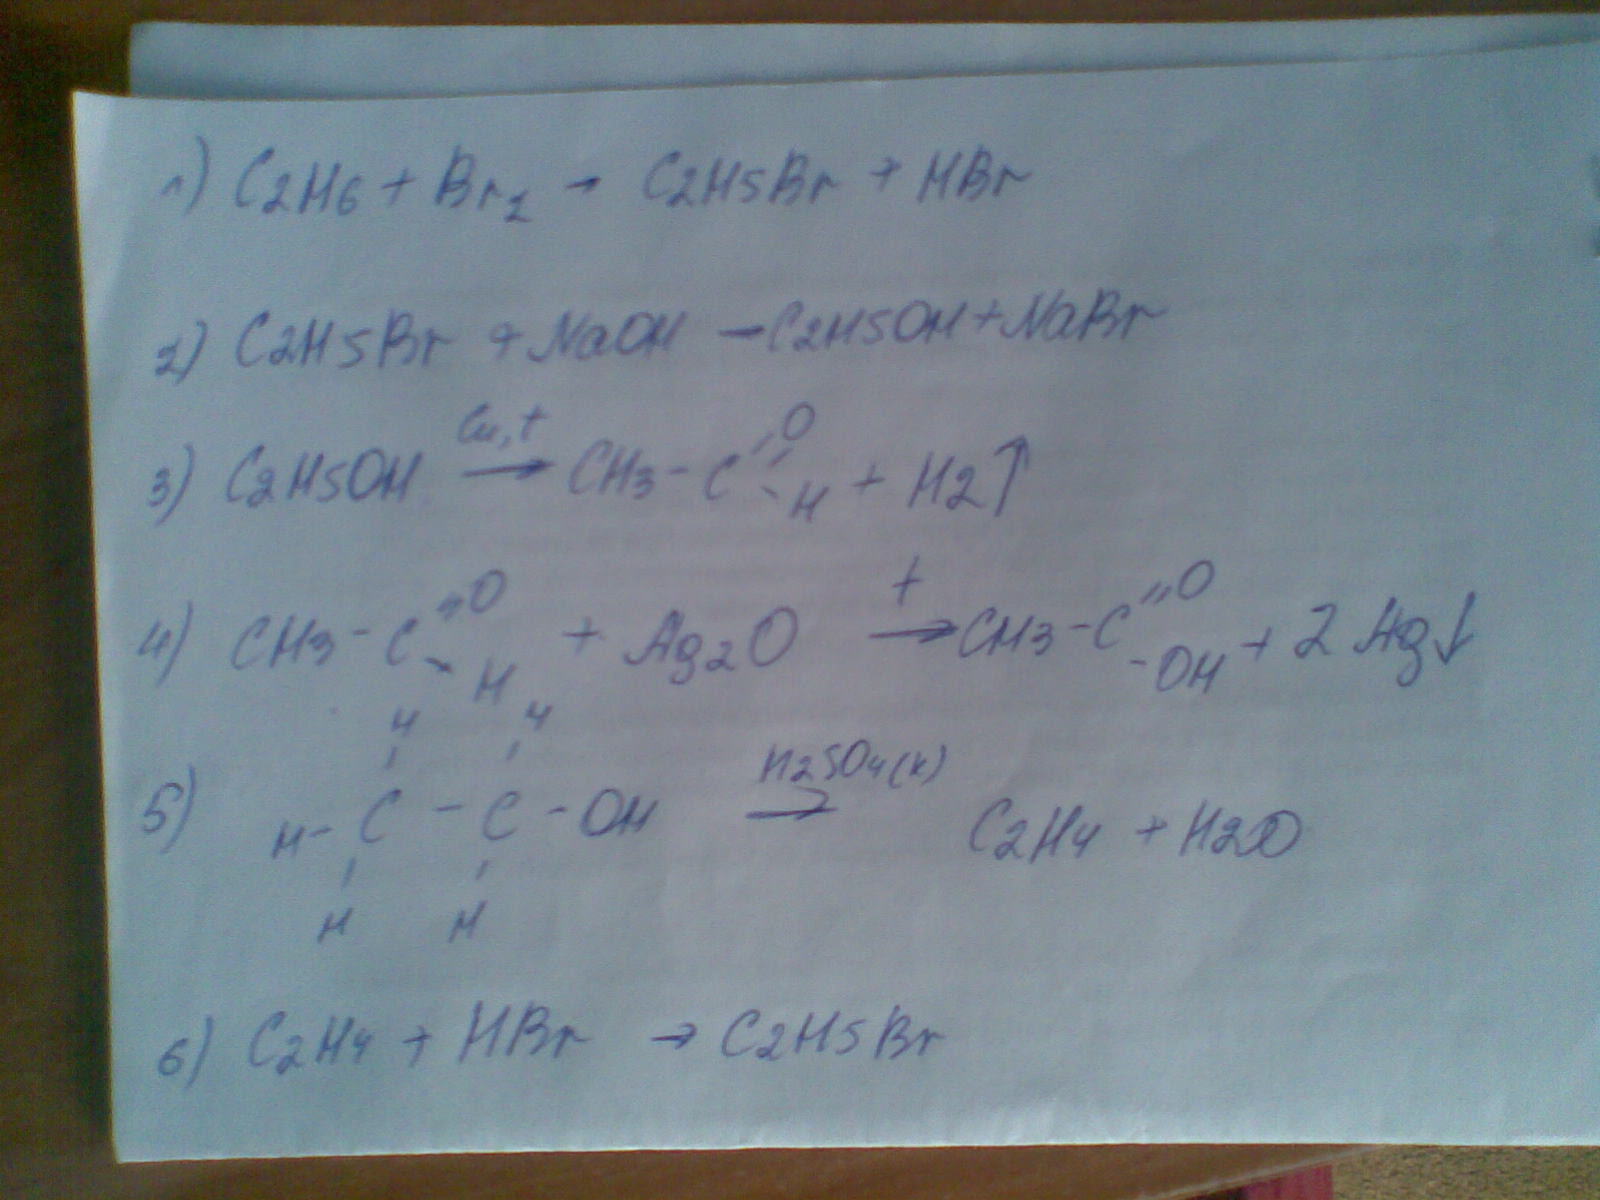 1) C2H6 + Br2 → C2H5Br + HBr
2) C2H5Br + NaOH → C2H5OH + NaBr
Cu, t
3) C2H5OH → CH3 - C =O -H + H2↑
t
4) CH3 - C =O - H + Ag2O → CH3 - C =O -OH + 2 Ag↓
H H
H2SO4(к)
5) H - C - C - OH → C2H4 + H2O
H H
6) C2H4 + HBr → C2H5Br